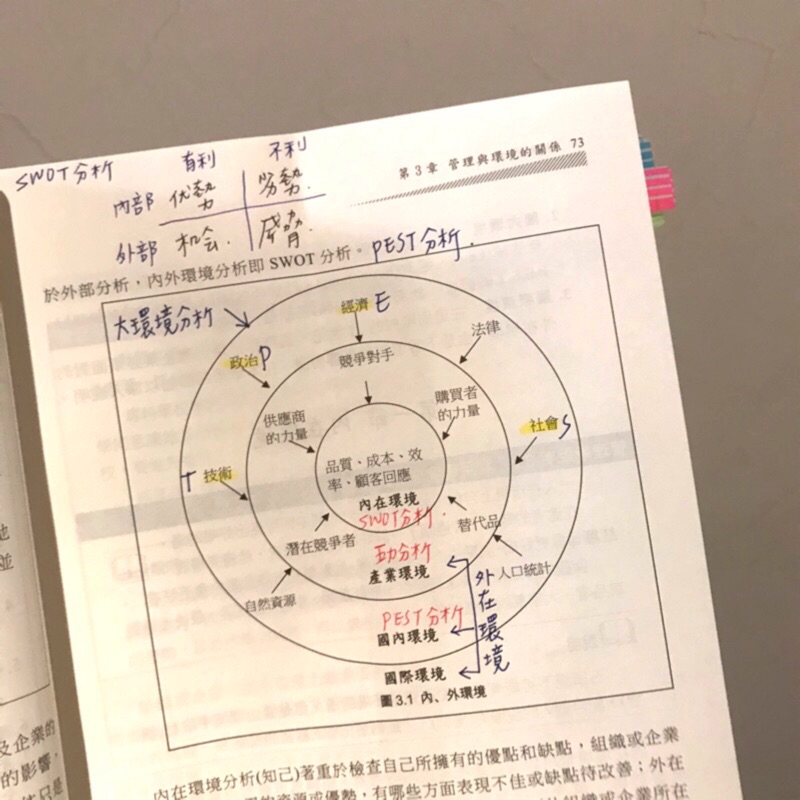 SWOT分析 有利 不利
第3章 管理與環境的關係 73
內部 优勢 劣勢.
外部 机会. 威脅.
於外部分析，內外環境分析即 SWOT 分析。 PEST分析.
大環境分析
經濟 E
法律
政治 P
競爭對手
供應商
的力量
購買者
的力量
社會 S
T 技術
品質、成本、效
率、顧客回應
內在環境
SWOT分析.
潛在競爭者
替代品
五力分析
產業環境
自然資源
人口統計
外在環境
PEST分析
國內環境
國際環境
圖 3.1 內、外環境
內在環境分析(知己)著重於檢查自己所擁有的優點和缺點，組織或企業
資源或優勢，有哪些方面表現不佳或缺點待改善；外在
組織或企業所在
並
及企業的
的影響，
只是